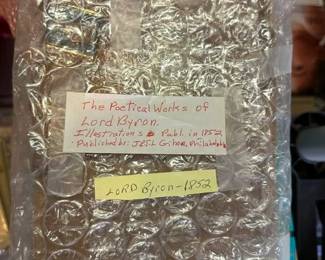 The Poetical Works of
Lord Byron.
Illustrations Publ. in 1852
Published by: Jesse Gihon, Philadelphia
LORD Byron-1852